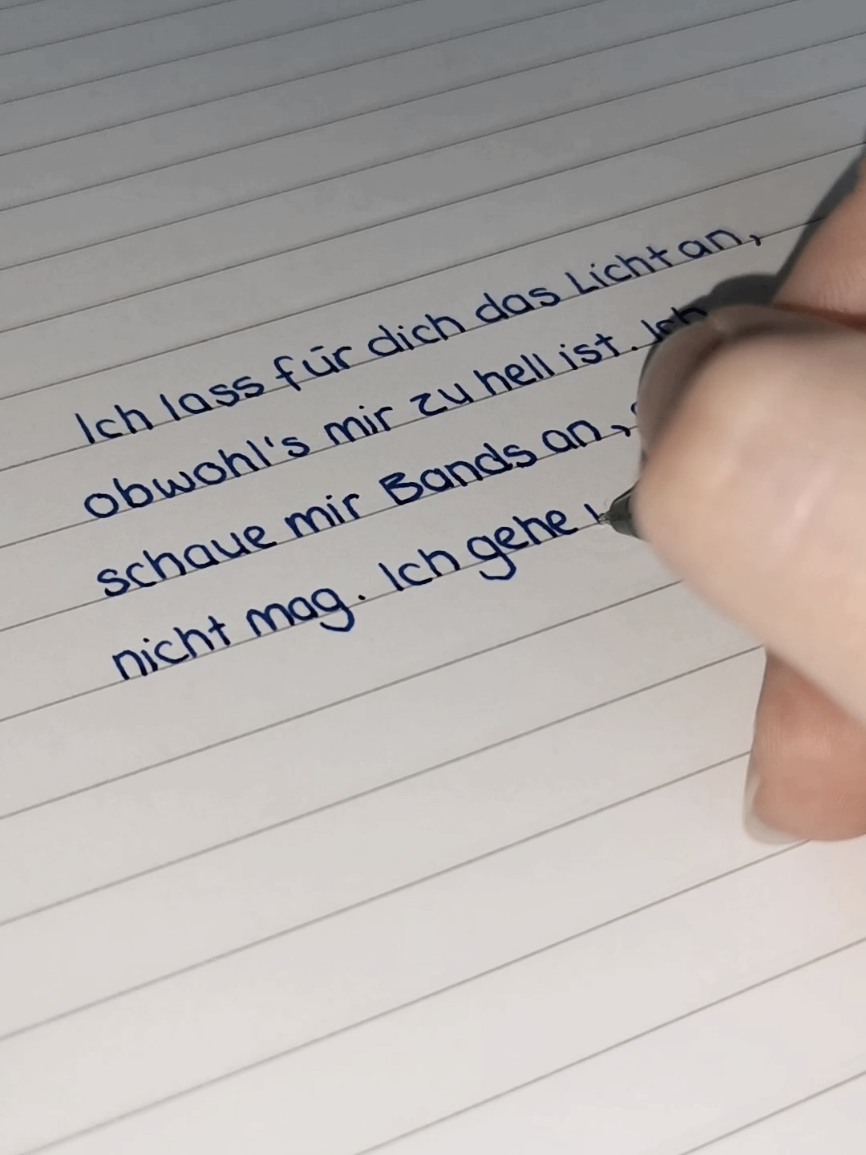 Ich lass für dich das Licht an,
obwohl's mir zu hell ist. Ich
schaue mir Bands an,
nicht mag. Ich gehe